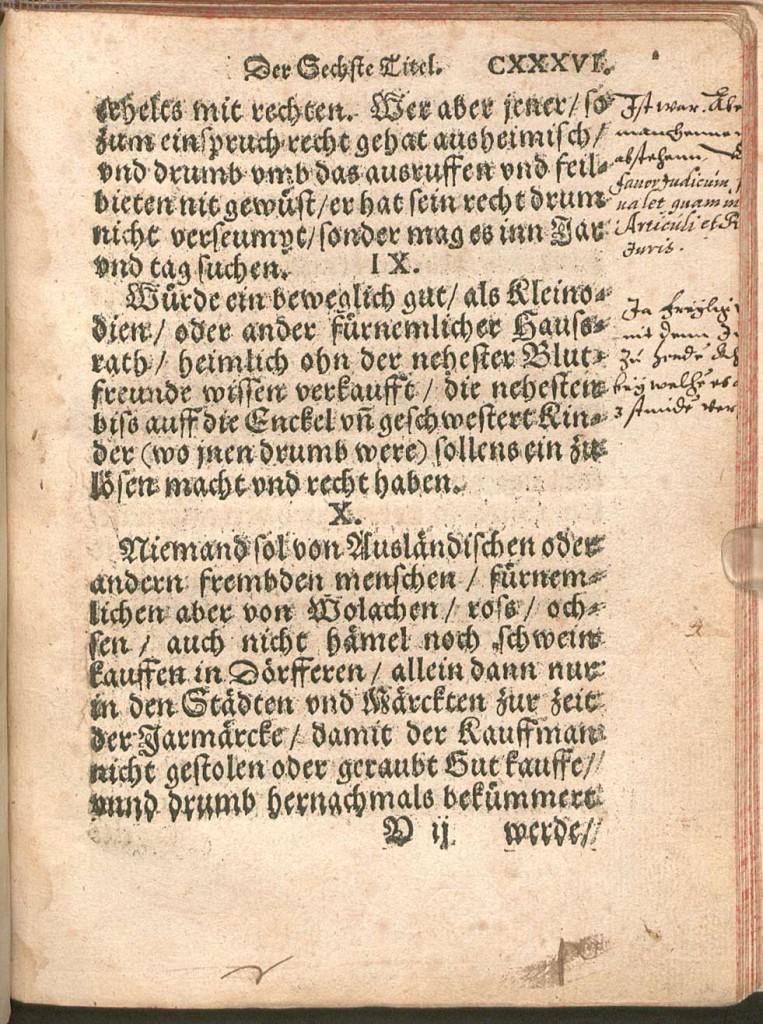 Der Sechste Titel. CXXXVI.
erhelts mit rechten. Wer aber jener/ so
zum einspruch recht gehat ausheimisch/
vnd drumb vmb das ausruffen vnd feil⸗
bieten nit gewüst/ er hat sein recht drum
nicht verseumpt/ sonder mag es inn Jar
vnd tag suchen. IX.
Würde ein beweglich gut/ als Kleino⸗
dien/ oder ander fürnemlicher Hauss⸗
rath/ heimlich ohn der nehester Blut⸗
freunde wissen verkaufft/ die nehesten
biss auff die Enckel vn̄ geschwestert Kin⸗
der (wo jnen drumb were) sollens ein zu
lösen macht vnd recht haben.
X.
Niemand sol von Ausländischen oder
andern frembden menschen/ fürnem⸗
lichen aber von Wolachen/ ross/ och⸗
sen/ auch nicht hämel noch schwein
kauffen in Dörfferen/ allein dann nur
in den Städten vnd Märckten zur zeit
der Jarmärcke/ damit der Kauffman
nicht gestolen oder geraubt Gut kauffe/
vnnd drumb hernachmals bekümmert
V ij werde/
Ist war. Abe
abstehenn
favor Judicium
valet quam in
Articuli et
Juris.
mit denn
Zu
bey welche es
3 stunde ver